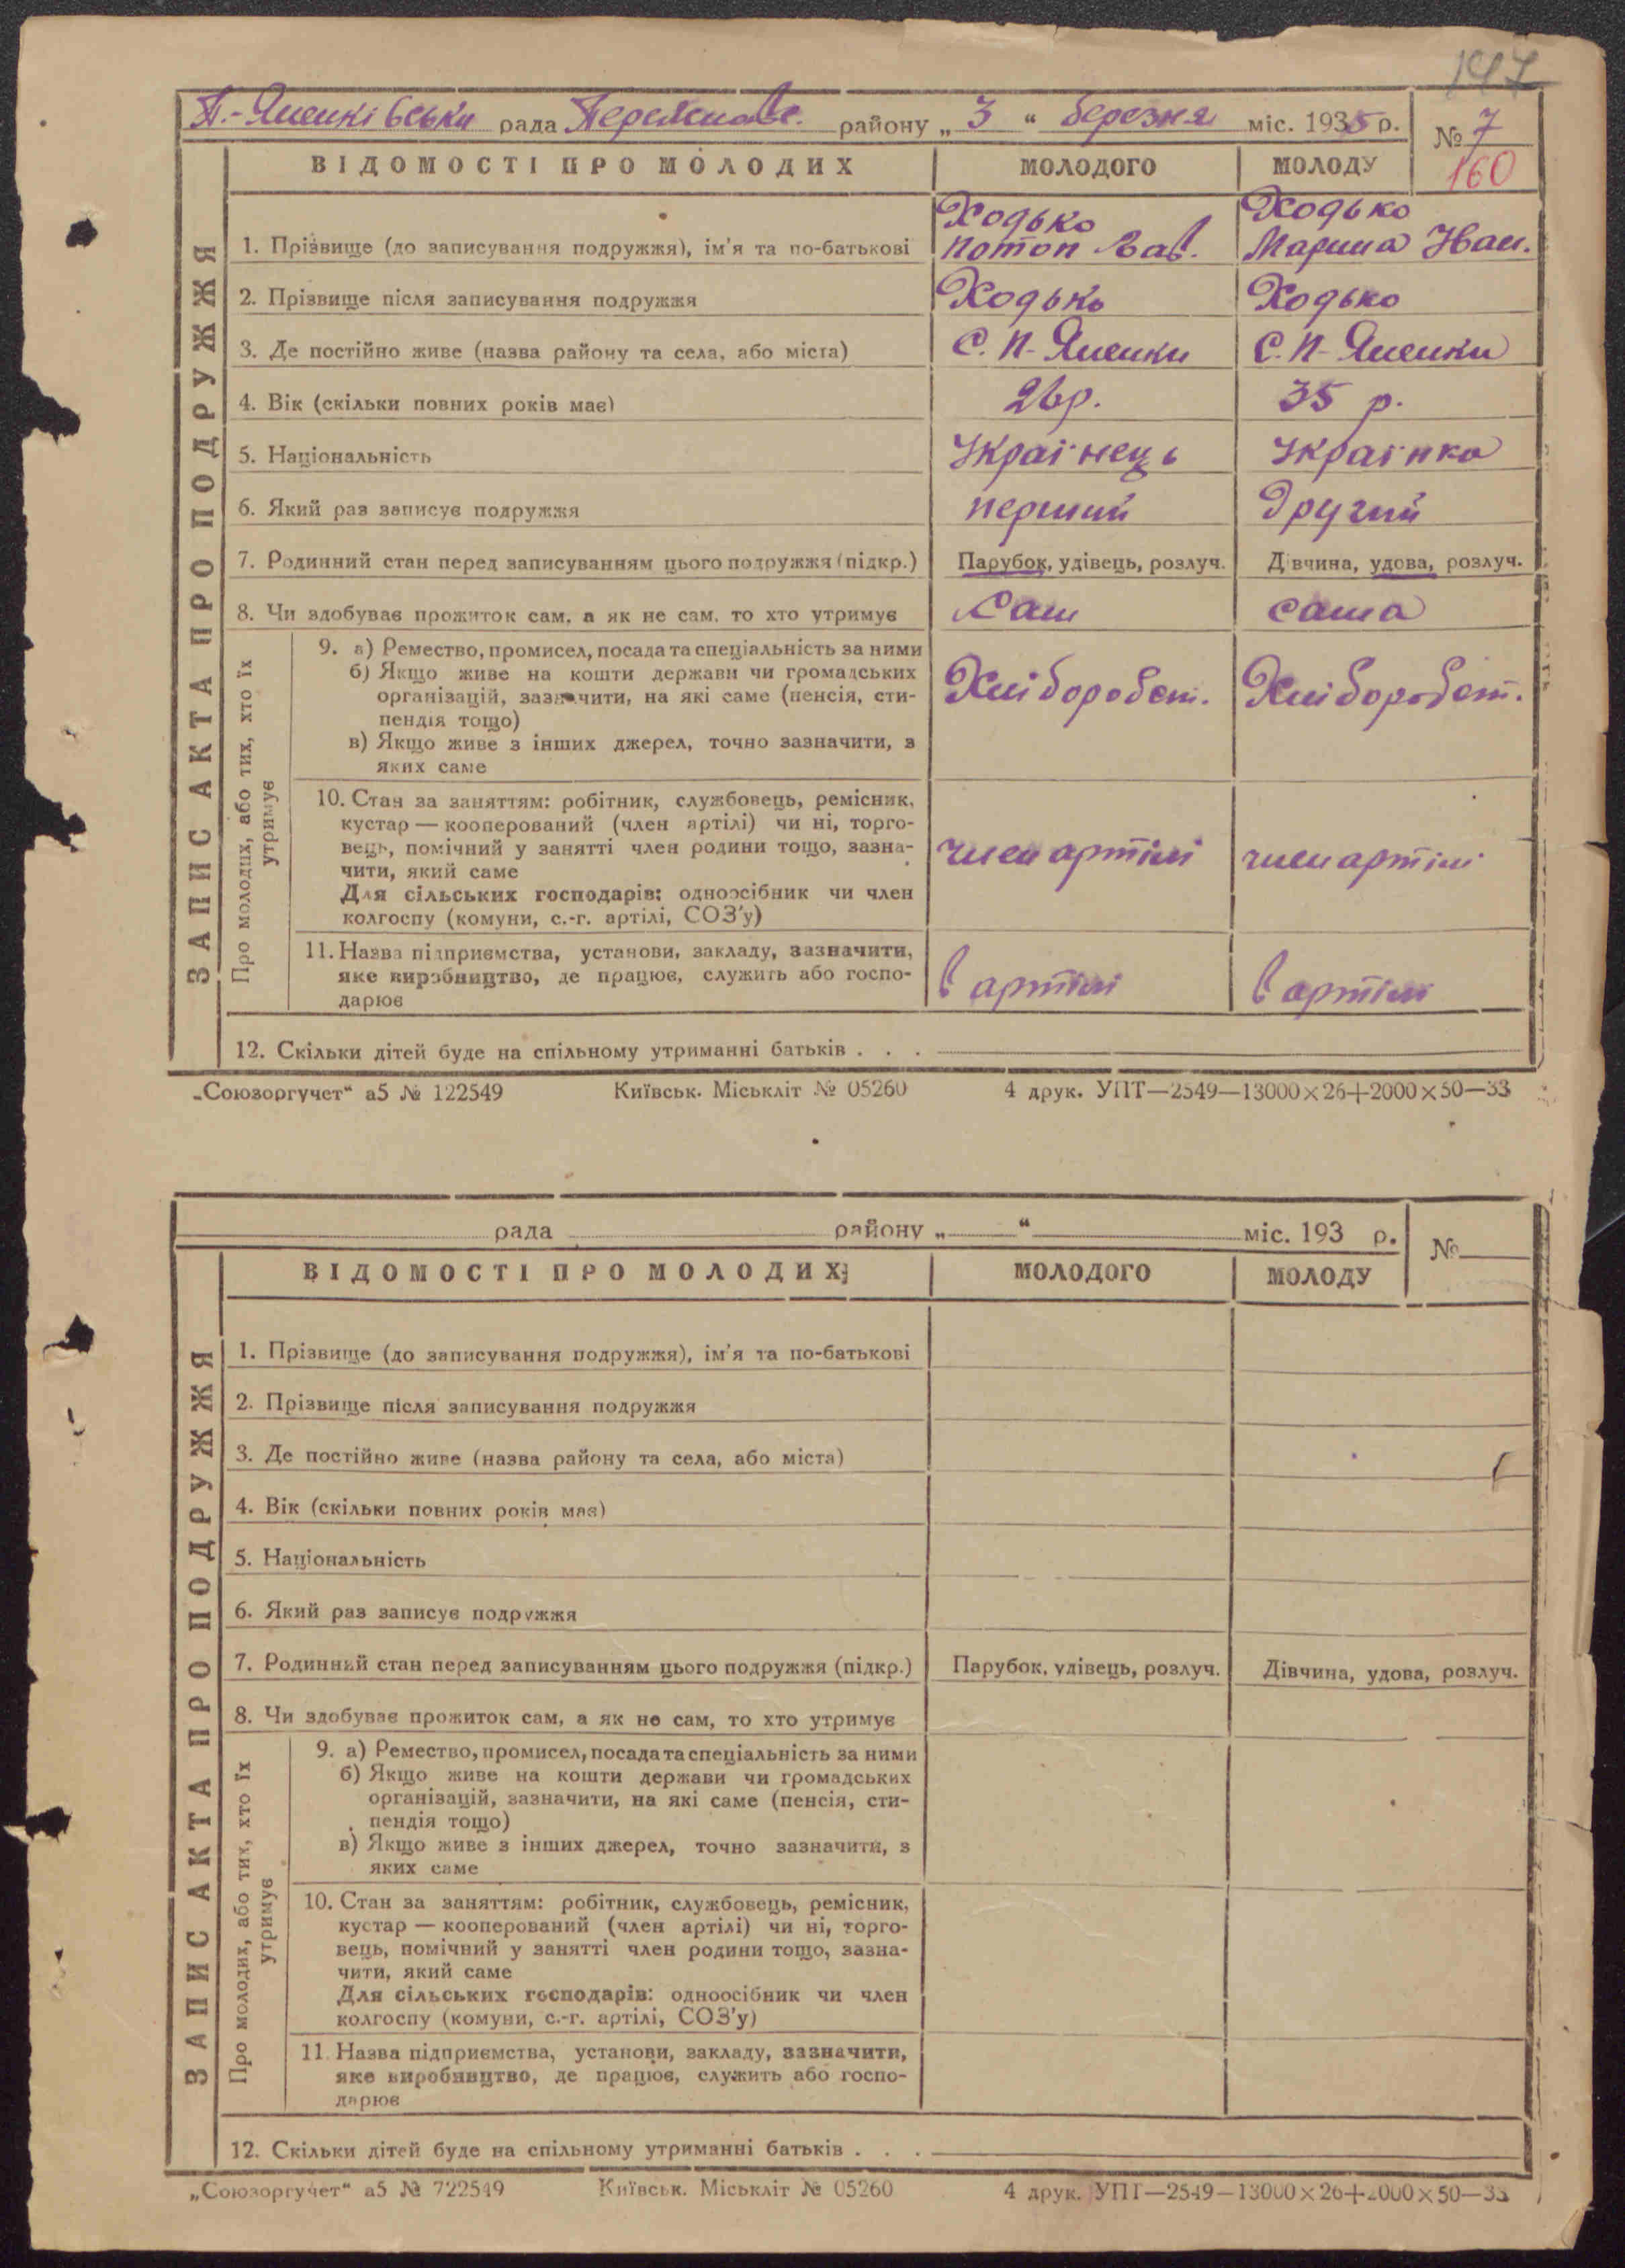 147
П.-Яненківська рада Переяславс. району „ 3 “ березня міс. 1935 р. № 7
160
ВІДОМОСТІ ПРО МОЛОДИХ МОЛОДОГО МОЛОДУ
ЗАПИС АКТА ПРО ПОДРУЖЖЯ
Ходько Ходько
1. Прізвище (до записування подружжя), ім'я та по-батькові Потоп Сав. Марина Іван.
2. Прізвище після записування подружжя Ходько Ходько
3. Де постійно живе (назва району та села, або міста) С. П-Яненки С. П-Яненки
4. Вік (скільки повних років має) 26р. 35 р.
5. Національність Українець Українка
6. Який раз записує подружжя перший Другий
7. Родинний стан перед записуванням цього подружжя (підкр.) Парубок, удівець, розлуч. Дівчина, удова, розлуч.
8. Чи здобуває прожиток сам, а як не сам, то хто утримує Сам сама
Про молодих, або тих, хто їх утримує
9. а) Ремество, промисел, посада та спеціальність за ними
б) Якщо живе на кошти держави чи громадських
організацій, зазначити, на які саме (пенсія, сти- Хліборобст. Хліборобст.
пендія тощо)
в) Якщо живе з інших джерел, точно зазначити, з
яких саме
10. Стан за заняттям: робітник, службовець, ремісник,
кустар — кооперований (член артілі) чи ні, торго-
вець, помічний у занятті член родини тощо, зазна- член артілі член артілі
чити, який саме
Для сільських господарів: одноосібник чи член
колгоспу (комуни, с.-г. артілі, СОЗ'у)
11. Назва підприємства, установи, закладу, зазначити,
яке виробництво, де працює, служить або госпо- в артілі в артілі
дарює
12. Скільки дітей буде на спільному утриманні батьків . . .
„Союзоргучет“ а5 № 122549 Київськ. Міськліт № 05260 4 друк. УПТ—2549—13000×26+2000×50—33
рада району „ “ міс. 193 р. №
ВІДОМОСТІ ПРО МОЛОДИХ МОЛОДОГО МОЛОДУ
ЗАПИС АКТА ПРО ПОДРУЖЖЯ
1. Прізвище (до записування подружжя), ім'я та по-батькові
2. Прізвище після записування подружжя
3. Де постійно живе (назва району та села, або міста)
4. Вік (скільки повних років має)
5. Національність
6. Який раз записує подружжя
7. Родинний стан перед записуванням цього подружжя (підкр.) Парубок, удівець, розлуч. Дівчина, удова, розлуч.
8. Чи здобуває прожиток сам, а як не сам, то хто утримує
Про молодих, або тих, хто їх утримує
9. а) Ремество, промисел, посада та спеціальність за ними
б) Якщо живе на кошти держави чи громадських
організацій, зазначити, на які саме (пенсія, сти-
пендія тощо)
в) Якщо живе з інших джерел, точно зазначити, з
яких саме
10. Стан за заняттям: робітник, службовець, ремісник,
кустар — кооперований (член артілі) чи ні, торго-
вець, помічний у занятті член родини тощо, зазна-
чити, який саме
Для сільських господарів: одноосібник чи член
колгоспу (комуни, с.-г. артілі, СОЗ'у)
11. Назва підприємства, установи, закладу, зазначити,
яке виробництво, де працює, служить або госпо-
дарює
12. Скільки дітей буде на спільному утриманні батьків . . .
„Союзоргучет“ а5 № 722549 Київськ. Міськліт № 05260 4 друк. УПТ—2549—13000×26+2000×50—33